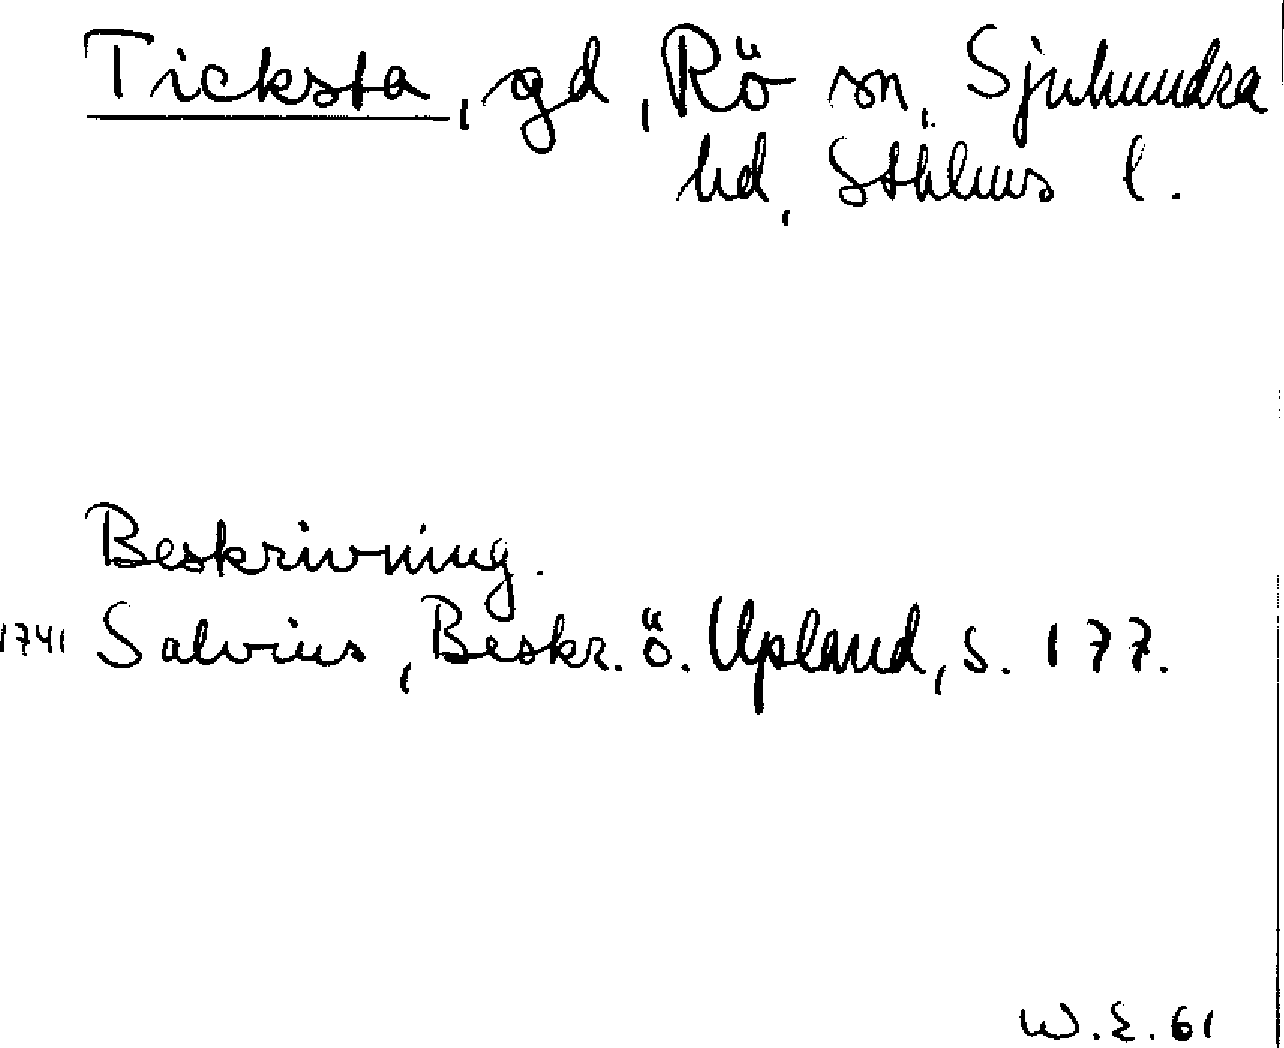 Ticksta, gd, Rö sn, Sjuhundra
hd, Sthlms l.
Beskrivning.
1741 Salvius, Beskr. ö. Upland, s. 177.
W.E. 61